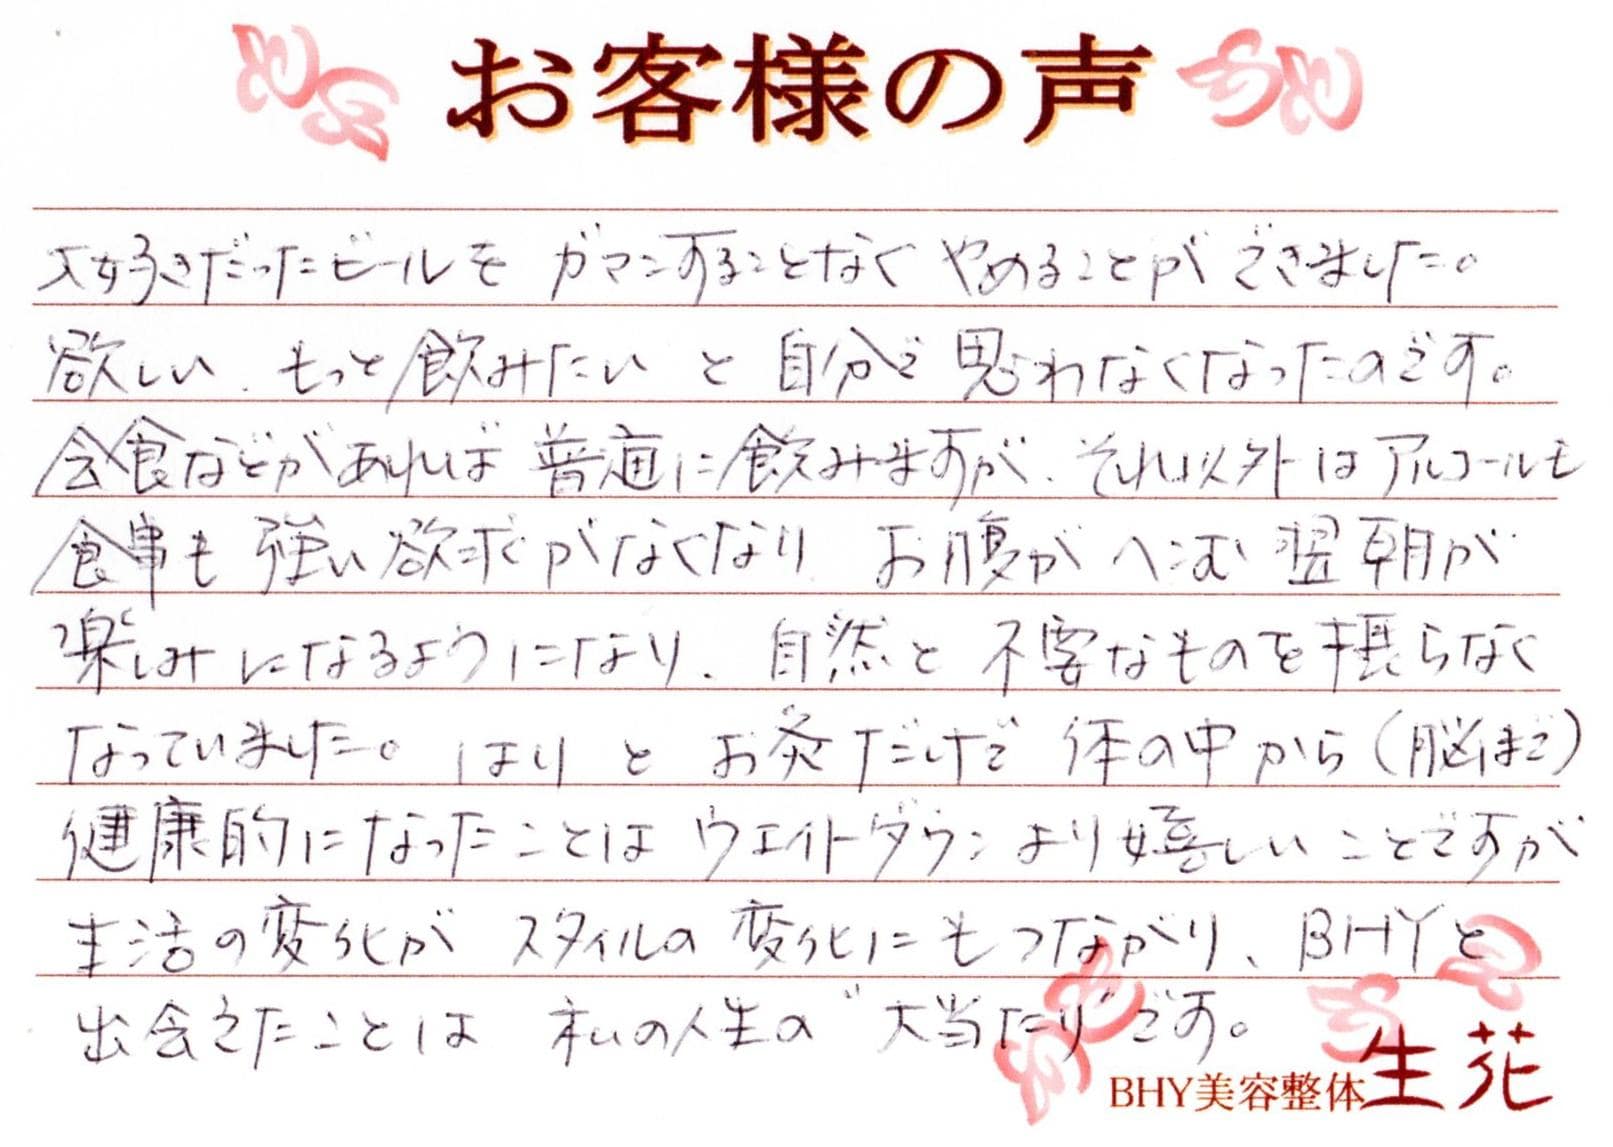 お客様の声
大好きだったビールを ガマンすることなく やめることが できました。
欲しい、もっと飲みたい と 自分で 思わなくなったのです。
会食などがあれば 普通に飲みますが、それ以外は アルコールも
食事も 強い欲求がなくなり お腹が へこむ 翌朝が
楽しみ になるようになり、自然と 不要なものを摂らなく
なっていました。 はり と お灸だけで 体の中から(脳まで)
健康的になったことは ウエイトダウン より嬉しい ことですが
生活の変化が スタイルの 変化にもつながり、BHYと
出会えたことは 私の人生の "大当たり"です。
BHY美容整体 生花